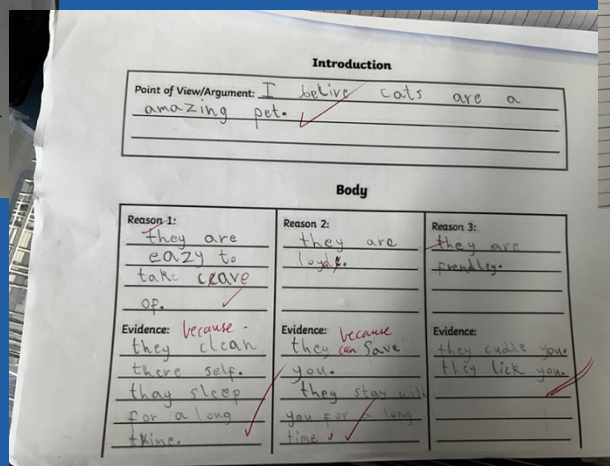 Introduction
Point of View/Argument: I belive cats are a
amazing pet.
Body
Reason 1:
they are
eazy to
take crave
of.
Evidence: because
they clean
there self.
thay sleep
for a long
tkine.
Reason 2:
they are
Evidence: because
they can save
you.
they stay with
you for a long
time.
Reason 3:
they are
frendley.
Evidence:
they cudle you.
they lick you.